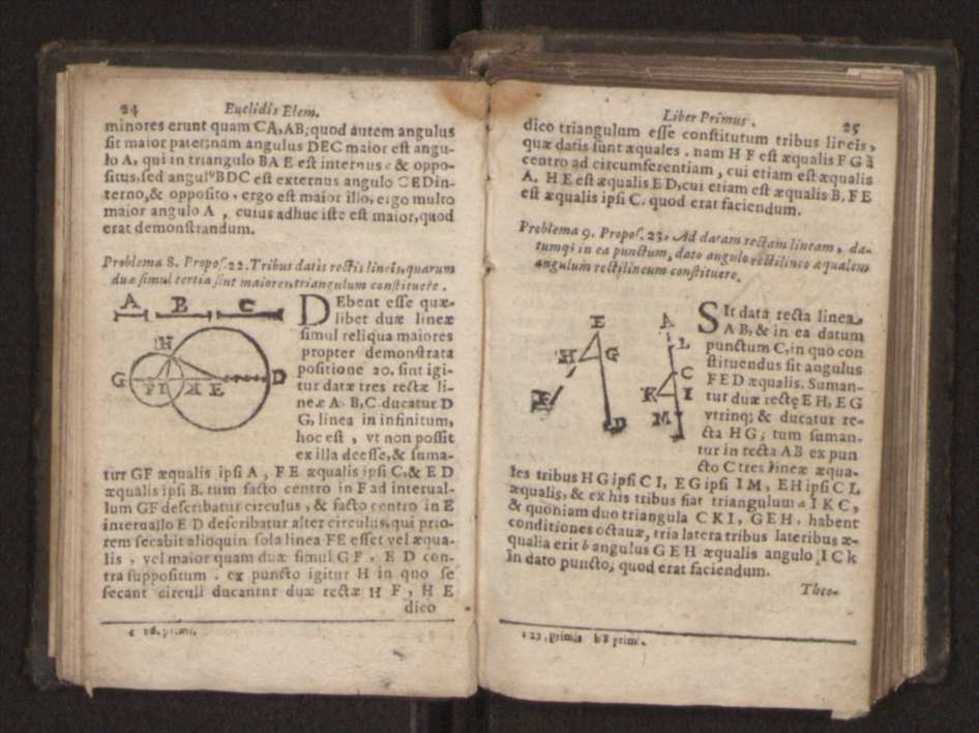 24 Euclidis Elem.
minores erunt quam CA, AB, quod autem angulus
sit maior patet; nam angulus DEC maior est angu-
lo A, qui in triangulo BAE est internus c & oppo-
situs. sed angul⁹ BDC est externus angulo CED in-
terno, & opposito, ergo est maior illo, ergo multo
maior angulo A, cuius adhuc iste est maior, quod
erat demonstrandum.
Problema 8. Propos. 22. Tribus datis rectis lineis, quarum
duæ simul tertia sint maiores, triangulum constituere.
A B C
DEbent esse quæ-
libet duæ lineæ
simul reliqua maiores
propter demonstrata
positione 20. sint igi-
tur datæ tres rectæ li-
neæ A. B, C. ducatur D
G, linea in infinitum,
hoc est, vt non possit
ex illa deesse, & suma-
H
G F I A E D
tur GF æqualis ipsi A, FE æqualis ipsi C, & ED
æqualis ipsi B. tum facto centro in F ad interual-
lum GF describatur circulus, & facto centro in E
interuallo ED describatur alter circulus, qui prio-
rem secabit alioquin sola linea FE esset vel æqua-
lis, vel maior quam duæ simul GF, ED con-
tra suppositum. ex puncto igitur H in quo se
secant circuli ducantur duæ rectæ HF, HE
dico
primi.
Liber Primus. 25
dico triangulum esse constitutum tribus lineis,
quæ datis sunt æquales. nam HF est æqualis FG à
centro ad circumferentiam, cui etiam est æqualis
A. HE est æqualis ED, cui etiam est æqualis B. FE
est æqualis ipsi C. quod erat faciendum.
Problema 9. Propos. 23. Ad datam rectam lineam, da-
tumqi in ea punctum, dato angulo rectilineo æqualem
angulum rectilineum constituere.
E H G F D
A L C K I M
SIt data recta linea
AB, & in ea datum
punctum C, in quo con
stituendus sit angulus
FED æqualis. Suman-
tur duæ rectę EH, EG
vtrinq; & ducatur re-
cta HG; tum suman-
tur in recta AB ex pun
cto C tres lineæ æqua-
les tribus HG ipsi CI, EG ipsi IM, EH ipsi CL
æqualis, & ex his tribus fiat triangulum a IKC,
& quoniam duo triangula CKI, GEH, habent
conditiones octauæ, tria latera tribus lateribus æ-
qualia erit b angulus GEH æqualis angulo ICk
in dato puncto, quod erat faciendum.
Theo-
a 22. primi b 8 primi.